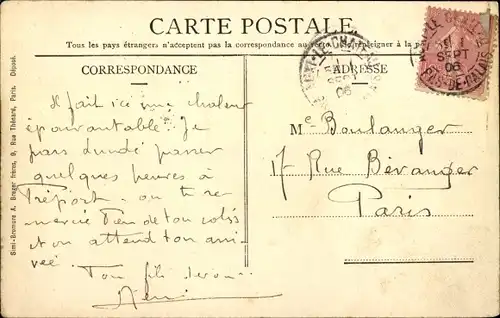 CARTE POSTALE
Tous les pays étrangers n'acceptent pas la correspondance au recto. (Se renseigner à la poste)
CORRESPONDANCE
ADRESSE
Il fait ici une chaleur
épouvantable. Je
pars lundi passer
quelques heures à
Tréport. on te re-
mercie bien de ton colis
et on attend ton arri-
vée.
Ton fils
Henri
Mr Boulanger
17 Rue Béranger
Paris
Simi-Bromure A. Breger frères, 9, Rue Thénard, Paris. Déposé.
SEPT
06
PAS-DE-CALAIS